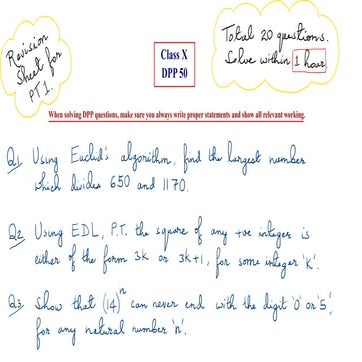 Revision
Sheet for
PT 1.
Class X
DPP 50
Total 20 questions.
Solve within 1 hour
When solving DPP questions, make sure you always write proper statements and show all relevant working.
Q1. Using Euclid's algorithm, find the largest number
which divides 650 and 1170.
Q2. Using EDL, P.T. the square of any +ve integer is
either of the form 3k or 3k+1, for some integer 'k'.
Q3. Show that (14)ⁿ can never end with the digit '0' or '5',
for any natural number 'n'.